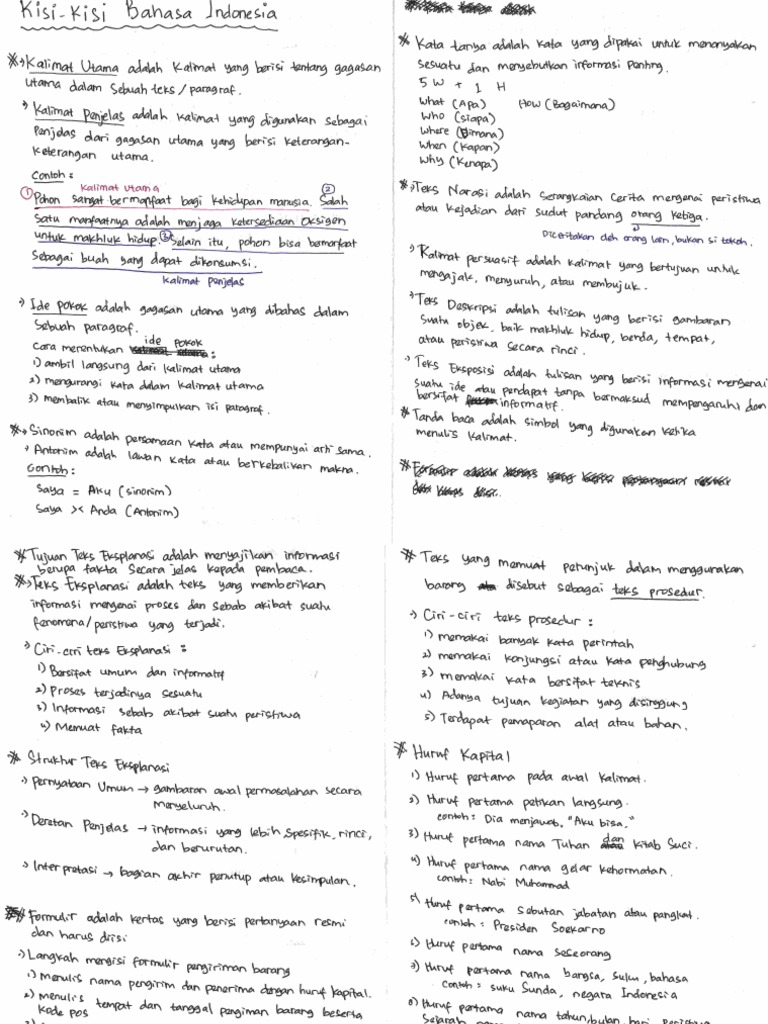 Kisi-Kisi Bahasa Indonesia
Kalimat Utama adalah kalimat yang berisi tentang gagasan
utama dalam sebuah teks / paragraf.
Kalimat Penjelas adalah kalimat yang digunakan sebagai
Penjelas dari gagasan utama yang berisi keterangan-
keterangan utama.
Contoh :
Kalimat utama
① Pohon sangat bermanfaat bagi kehidupan manusia. ② Salah
satu manfaatnya adalah menjaga ketersediaan oksigen
untuk makhluk hidup. ③ Selain itu, pohon bisa bermanfaat
sebagai buah yang dapat dikonsumsi.
kalimat penjelas
Ide pokok adalah gagasan utama yang dibahas dalam
sebuah paragraf.
Cara menentukan ide pokok :
1) ambil langsung dari kalimat utama
2) mengurangi kata dalam kalimat utama
3) membalik atau menyimpulkan isi paragraf.
Sinonim adalah persamaan kata atau mempunyai arti sama.
Antonim adalah lawan kata atau berkebalikan makna.
Contoh :
Saya = Aku (sinonim)
Saya >< Anda (Antonim)
Tujuan Teks Eksplanasi adalah menyajikan informasi
berupa fakta secara jelas kepada pembaca.
Teks Eksplanasi adalah teks yang memberikan
informasi mengenai proses dan sebab akibat suatu
fenomena/peristiwa yang terjadi.
Ciri-ciri teks Eksplanasi :
1) Bersifat umum dan informatif
2) Proses terjadinya sesuatu
3) Informasi sebab akibat suatu peristiwa
4) Memuat fakta
Struktur Teks Eksplanasi
Pernyataan Umum → gambaran awal permasalahan secara
menyeluruh.
Deretan Penjelas → informasi yang lebih spesifik, rinci,
dan berurutan.
Interpretasi → bagian akhir penutup atau kesimpulan.
Formulir adalah kertas yang berisi pertanyaan resmi
dan harus diisi
Langkah mengisi formulir pengiriman barang
1) menulis nama pengirim dan penerima dengan huruf kapital.
2) menulis tempat dan tanggal pengiman barang beserta
kode pos
Kata tanya adalah kata yang dipakai untuk menanyakan
sesuatu dan menyebutkan informasi penting.
5 W + 1 H
What (Apa) How (Bagaimana)
Who (siapa)
Where (Dimana)
When (Kapan)
Why (Kenapa)
Teks Narasi adalah serangkaian cerita mengenai peristiwa
atau kejadian dari sudut pandang orang ketiga.
Diceritakan oleh orang lain, bukan si tokoh.
Kalimat persuasif adalah kalimat yang bertujuan untuk
mengajak, menyuruh, atau membujuk.
Teks Deskripsi adalah tulisan yang berisi gambaran
suatu objek, baik makhluk hidup, benda, tempat,
atau peristiwa secara rinci.
Teks Eksposisi adalah tulisan yang berisi informasi mengenai
suatu ide atau pendapat tanpa bermaksud mempengaruhi dan
bersifat informatif.
Tanda baca adalah simbol yang digunakan ketika
menulis kalimat.
Teks yang memuat petunjuk dalam menggunakan
barang disebut sebagai teks prosedur.
Ciri-ciri teks prosedur :
1) memakai banyak kata perintah
2) memakai konjungsi atau kata penghubung
3) memakai kata bersifat teknis
4) Adanya tujuan kegiatan yang disinggung
5) Terdapat pemaparan alat atau bahan.
Huruf Kapital
1) Huruf pertama pada awal kalimat.
2) Huruf pertama petikan langsung.
contoh : Dia menjawab, "Aku bisa,"
3) Huruf pertama nama Tuhan dan kitab suci.
4) Huruf pertama nama gelar kehormatan.
contoh : Nabi Muhammad
5) Huruf pertama sebutan jabatan atau pangkat.
contoh : Presiden Soekarno
6) Huruf pertama nama seseorang
7) Huruf pertama nama bangsa, suku, bahasa
Contoh : suku Sunda, negara Indonesia
8) Huruf pertama nama tahun, bulan, hari, peristiwa